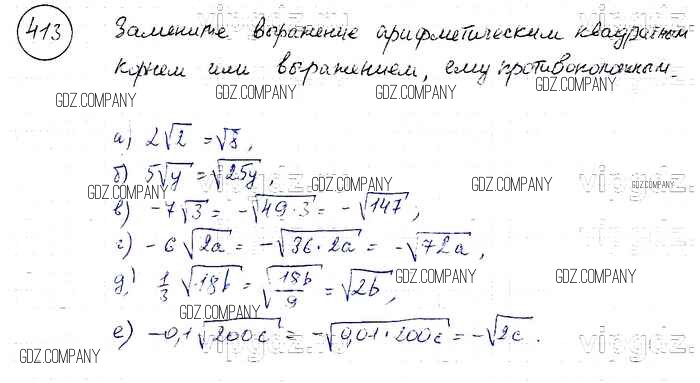 413 Замените выражение арифметическим квадратным
корнем или выражением, ему противоположным.
GDZ.COMPANY GDZ.COMPANY GDZ.COMPANY GDZ.COMPANY
а) 2√2 = √8,
б) 5√y = √25y,
GDZ.COMPANY GDZ.COMPANY GDZ.COMPANY GDZ.COMPANY
в) -7√3 = -√49·3 = -√147,
г) -6√2a = -√36·2a = -√72a,
д) 1/3 √18b = √18b/9 = √2b,
GDZ.COMPANY GDZ.COMPANY GDZ.COMPANY GDZ.COMPANY
е) -0,1√200c = -√0,01·200c = -√2c.
GDZ.COMPANY GDZ.COMPANY GDZ.COMPANY GDZ.COMPANY